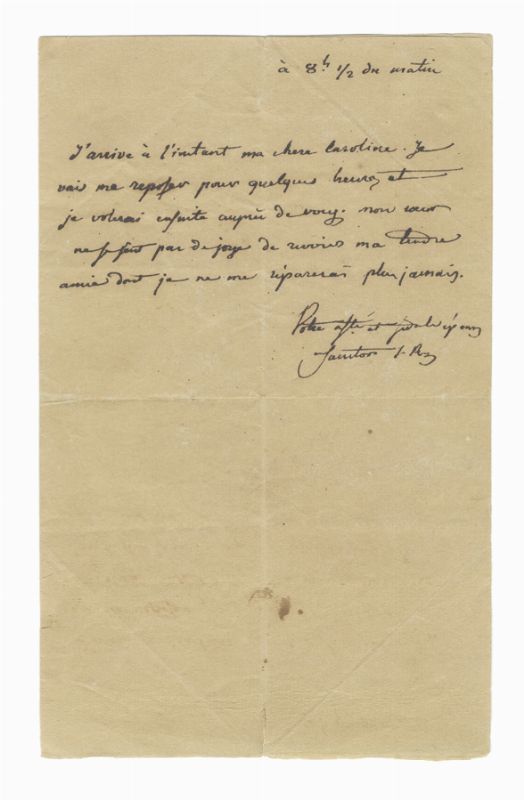 à 8h 1/2 du matin
J'arrive à l'instant ma chere Caroline. Je
vais me reposer pour quelques heures et
je volerai ensuite auprès de vous. mon cœur
ne se sent pas de joye de revoir ma tendre
amie dont je ne me séparerai plus jamais.
Votre affé et fidele époux